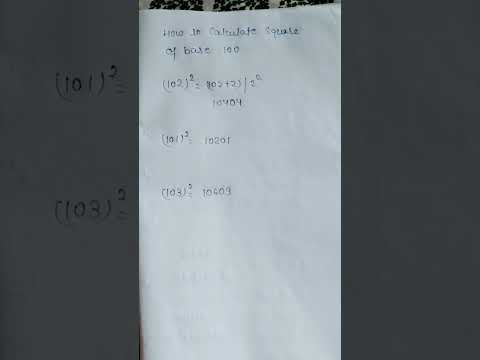 How to Calculate Square
of base 100
(102)² = 102+2) | 2²
10404
(101)² = 10201
(103)² = 10609
(101)² =
(103)² =